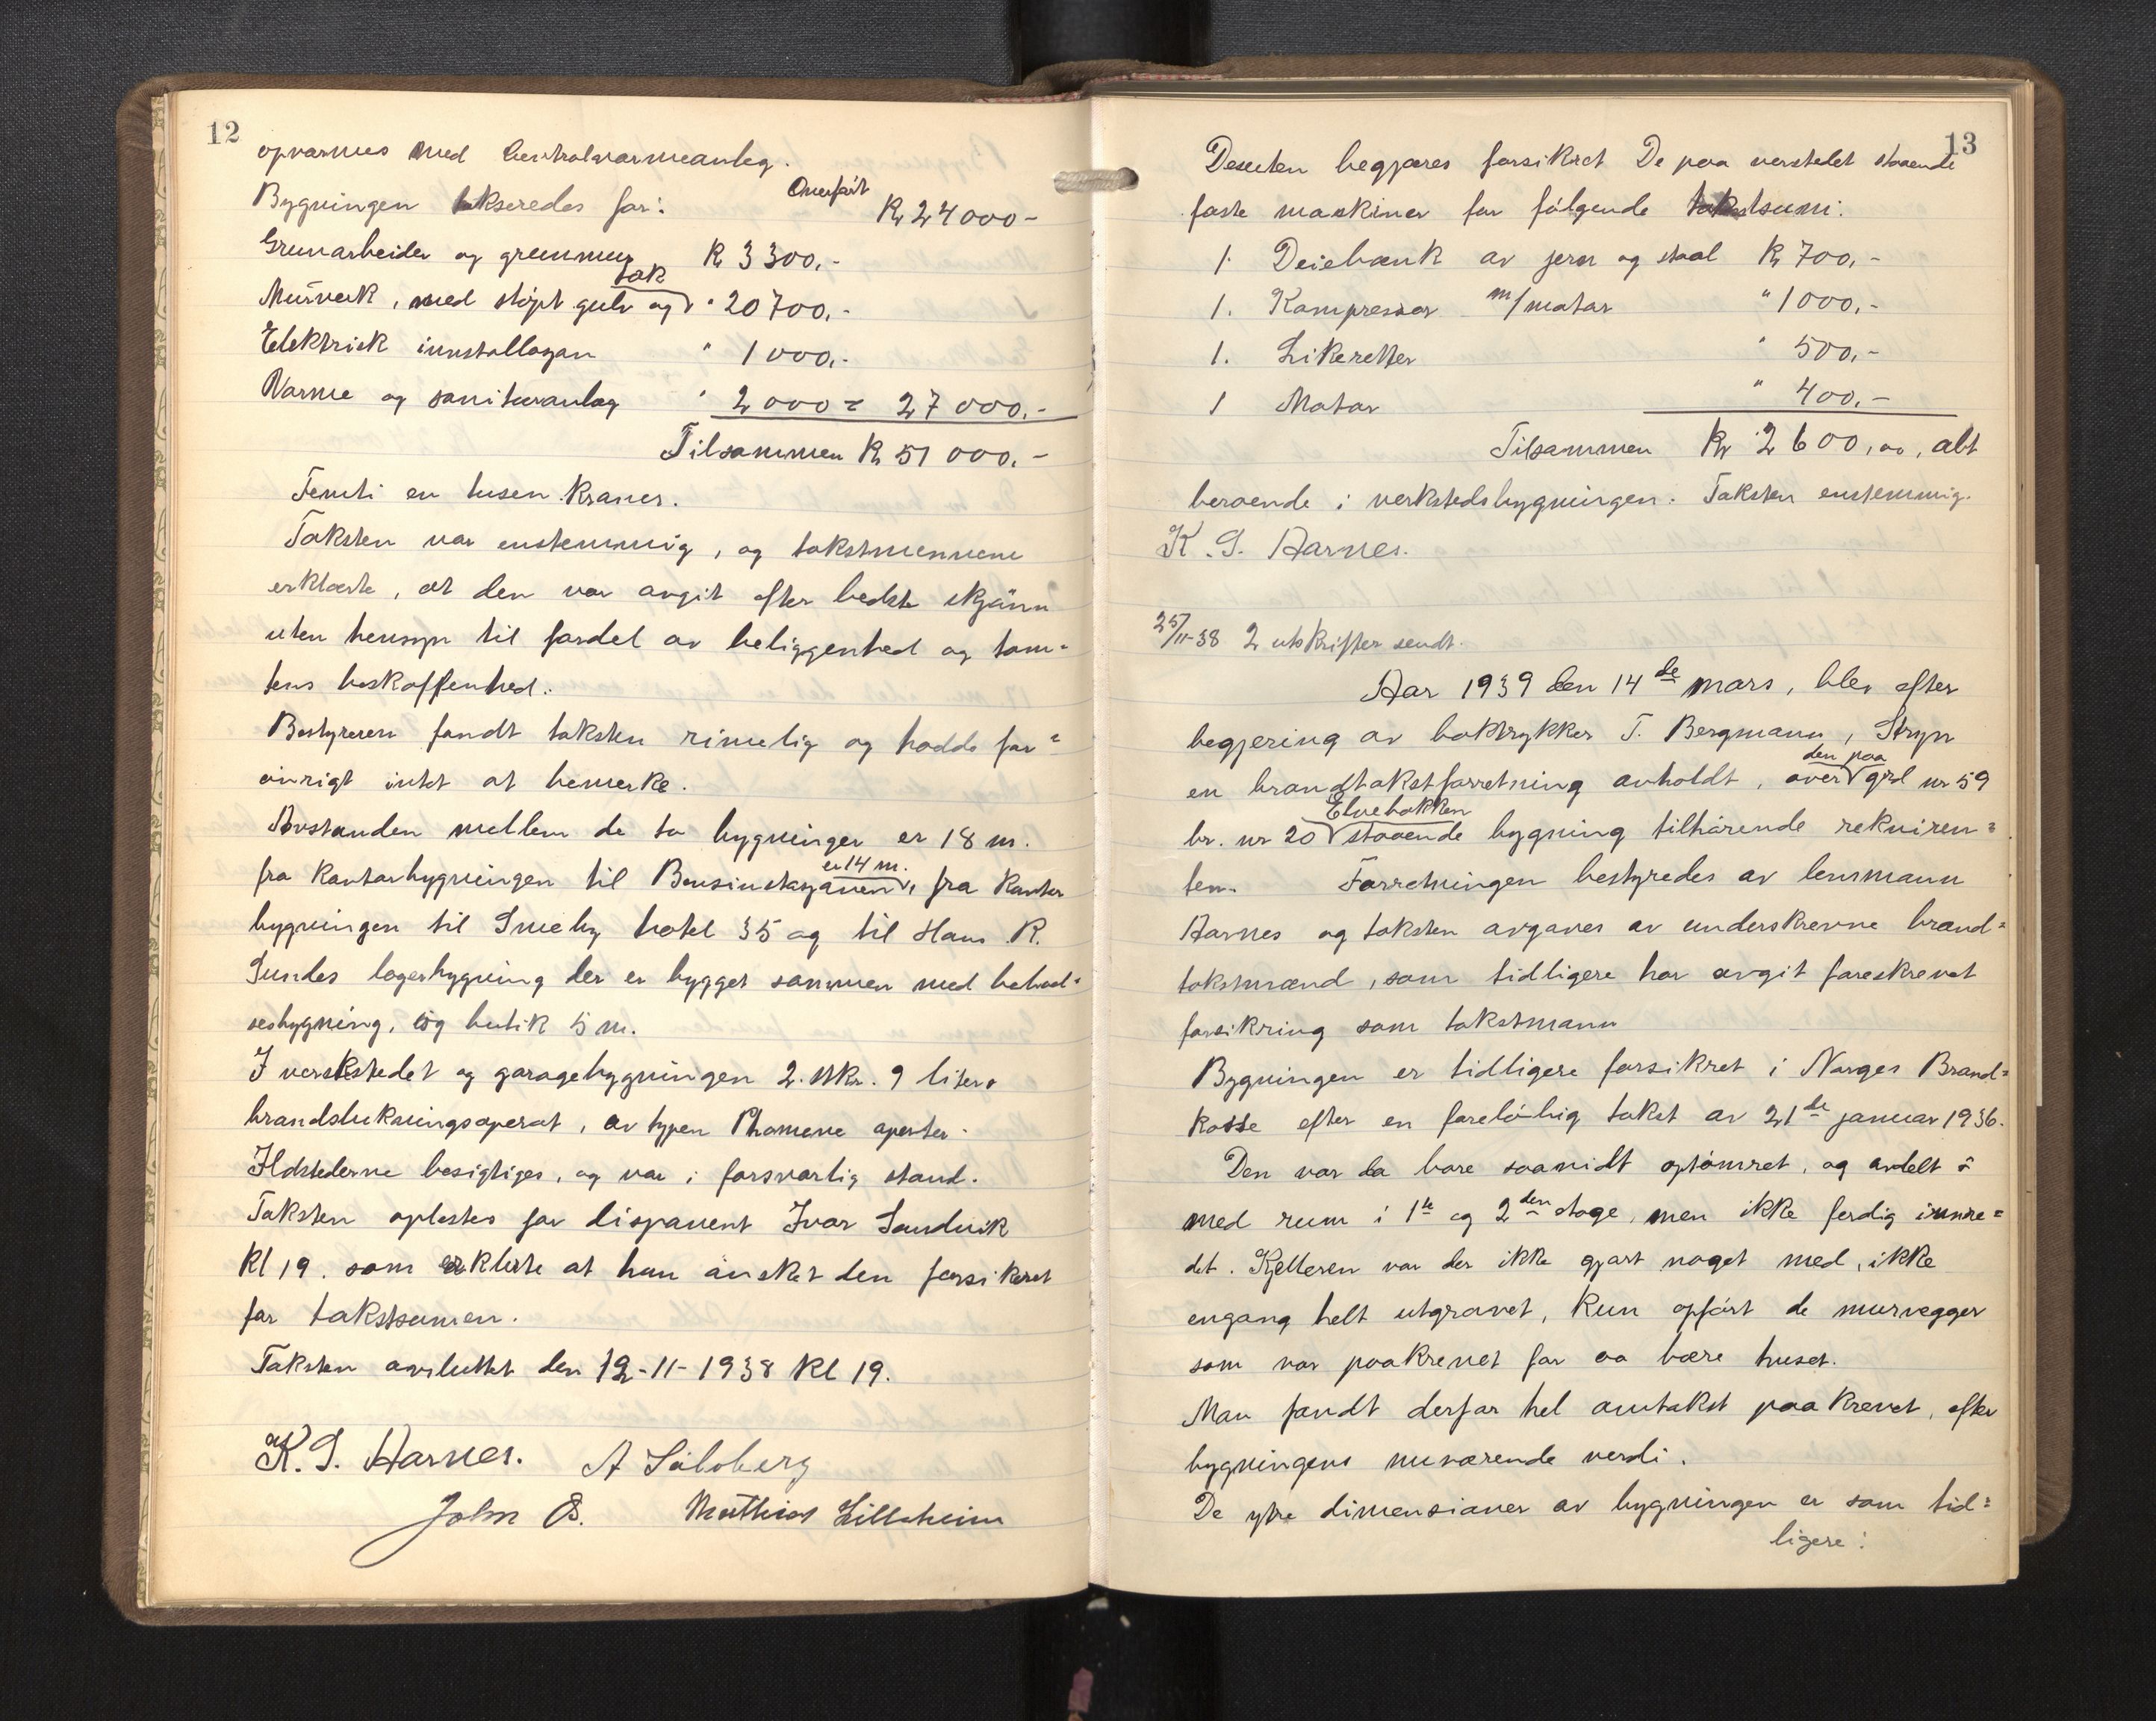 12
opvarmes med Centralvarmeanleg.
Bygningen takseredes for: Overført Kr 24000-
Grunarbeider og grunnmur Kr 3300,-
Murverk, med støpt gulv og tak " 20700,-
Elektrisk innstallasjon " 1000,-
Varme og sanitæranlæg " 2000 = 27000,-
Tilsammen Kr 51000,-
Femti en tusen Kroner.
Taksten var enstemmig, og takstmennene
erklærte, at den var avgit efter bedste skjønn
uten hensyn til fordel av beliggenhed og tom=
tens beskaffenhed.
Bestyreren fandt taksten rimelig og hadde for=
øvrigt intet at bemerke.
Avstanden mellem de to bygninger er 18 m.
fra Kontorbygningen til Bensinstasjonen er 14 m., fra Kontor
bygningen til Smeby hotel 35 og til Hans R.
Sundes lagerbygning der er bygget sammen med beboel=
sesbygning, og butik 5 m.
I verkstedet og garagebygningen 2. stkr. 9 liters
brandslukningsaperat, av typen Phomene aperter.
Ildstederne besigtiges, og var i forsvarlig stand.
Taksten oplestes for disponent Ivar Sandvik
Kl 19. som erklærte at han ønsket den forsikeret
for takstsumen.
Taksten avsluttet den 12-11-1938 Kl 19.
K. S. Harnes. A Solvberg
John Ø. Mathias Lilleheim
13
Desuten begjæres forsikret De paa verstedet staaende
faste maskiner for følgende takstsum:
1. Deiebænk av jern og staal Kr 700,-
1. Kompressor m/motor " 1000,-
1. Likeretter " 500,-
1 Motor " 400,-
Tilsammen Kr 2600,00, alt
beroende i verkstedsbygningen. Taksten enstemmig.
K. S. Harnes.
25/11-38 2 utskrifter sendt.
Aar 1939 den 14de mars, blev efter
begjering av boktrykker T. Bergmann, Stryn
en brandtakstforretning avholdt, over den paa grd nr 59
br. nr 20 Elvebakken staaende bygning tilhørende rekviren=
ten. Forretningen bestyredes av lensmann
Harnes og taksten avgaves av underskrevne brand=
takstmænd, som tidligere har avgit foreskrevet
forsikring som takstmann
Bygningen er tidligere forsikret i Norges Brand=
kasse efter en foreløbig takst av 21de januar 1936.
Den var da bare saavidt optømret, og avdelt
med rum i 1ste og 2den etage, men ikke ferdig innre=
det. Kjelleren var der ikke gjort noget med, ikke
engang helt utgravet, Kun opført de murvegger
som var paakrevet for aa bære huset.
Man fandt derfor hel omtakst paakrevet, efter
bygningens nuværende verdi.
De ytre dimensioner av bygningen er som tid=
ligere: